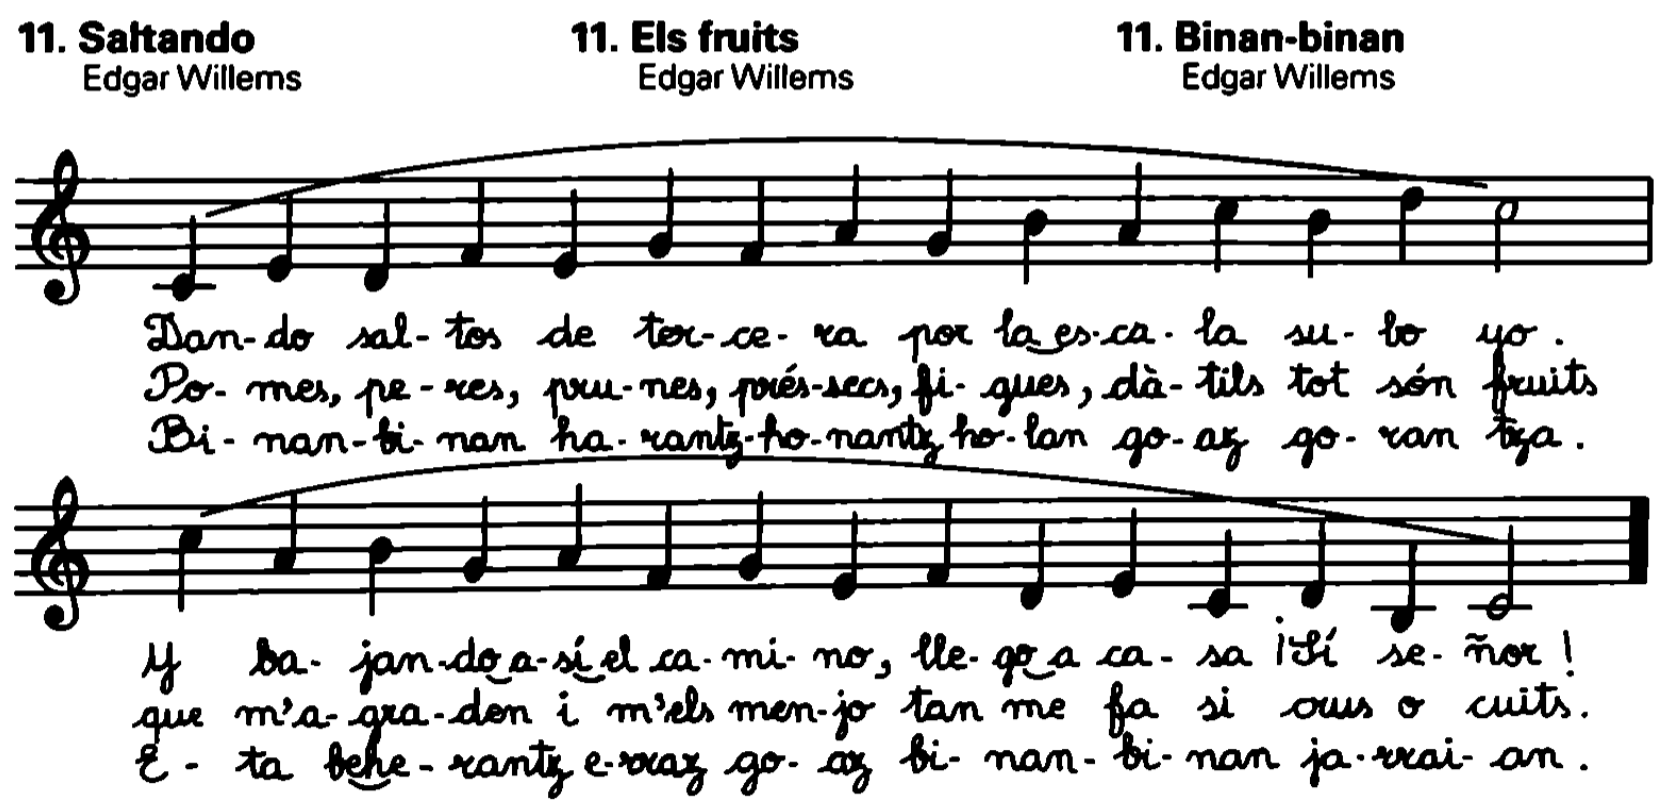 11. Saltando 11. Els fruits 11. Binan-binan
Edgar Willems Edgar Willems Edgar Willems
Dan-do sal-tos de ter-ce-ra por la es-ca-la su-bo yo.
Po-mes, pe-res, pru-nes, prés-secs, fi-gues, dà-tils tot són fruits
Bi-nan-bi-nan ha-rantz-ho-nantz ho-lan go-az go-ran tza.
Y ba-jan-do a-sí el ca-mi-no, lle-go a ca-sa ¡Sí se-ñor!
que m'a-gra-den i m'els men-jo tan me fa si crus o cuits.
E-ta behe-rantz e-rraz go-az bi-nan-bi-nan ja-rrai-an.